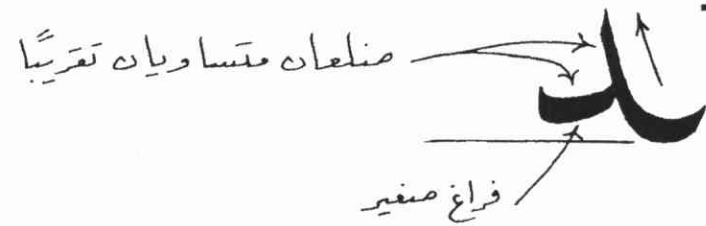 ضلعان متساويان تقريبًا
فراغ صغير